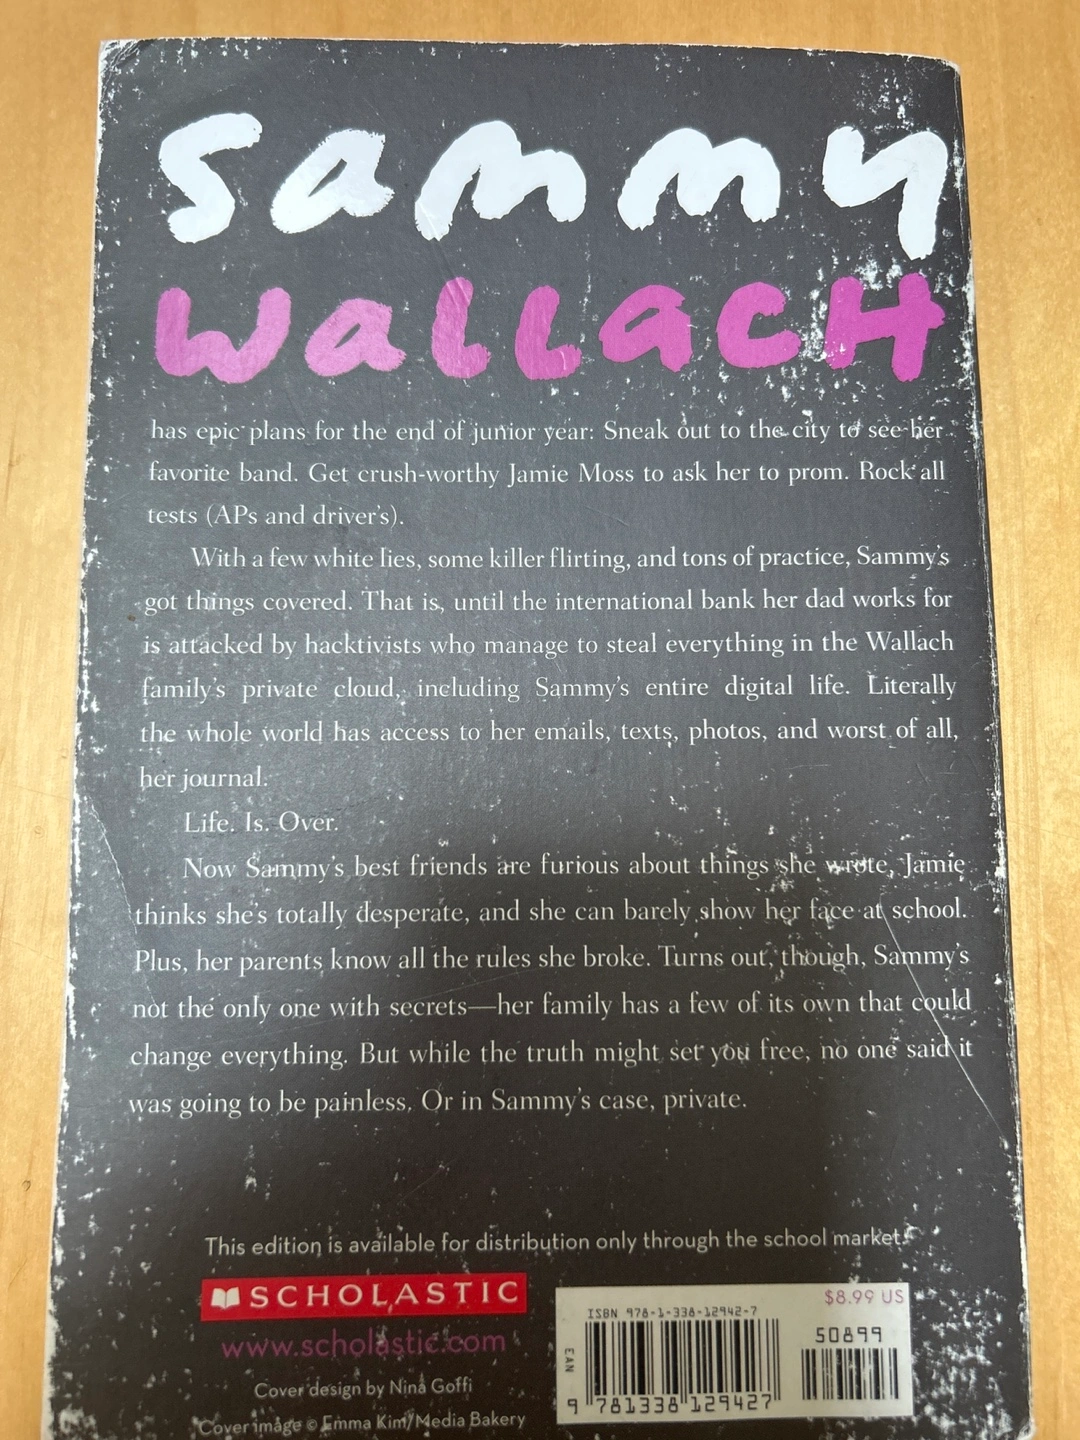 Sammy
WallacH
has epic plans for the end of junior year: Sneak out to the city to see her
favorite band. Get crush-worthy Jamie Moss to ask her to prom. Rock all
tests (APs and driver's).
With a few white lies, some killer flirting, and tons of practice, Sammy's
got things covered. That is, until the international bank her dad works for
is attacked by hacktivists who manage to steal everything in the Wallach
family's private cloud, including Sammy's entire digital life. Literally
the whole world has access to her emails, texts, photos, and worst of all,
her journal.
Life. Is. Over.
Now Sammy's best friends are furious about things she wrote, Jamie
thinks she's totally desperate, and she can barely show her face at school.
Plus, her parents know all the rules she broke. Turns out, though, Sammy's
not the only one with secrets—her family has a few of its own that could
change everything. But while the truth might set you free, no one said it
was going to be painless. Or in Sammy's case, private.
This edition is available for distribution only through the school market.
SCHOLASTIC
www.scholastic.com
Cover design by Nina Goffi
Cover image © Emma Kim/Media Bakery
$8.99 US
ISBN 978-1-338-12942-7
50899
EAN
9 781338 129427